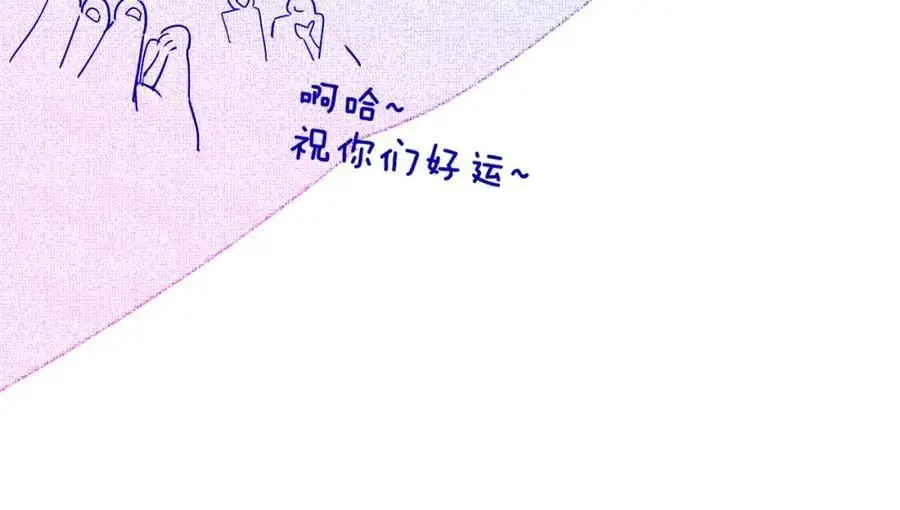 啊哈~
祝你们好运~